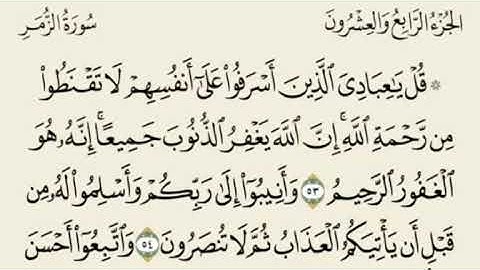 الجزء الرابع والعشرون سورة الزمر
۞ قُلْ يَٰعِبَادِىَ ٱلَّذِينَ أَسْرَفُوا۟ عَلَىٰٓ أَنفُسِهِمْ لَا تَقْنَطُوا۟
مِن رَّحْمَةِ ٱللَّهِ ۚ إِنَّ ٱللَّهَ يَغْفِرُ ٱلذُّنُوبَ جَمِيعًا ۚ إِنَّهُۥ هُوَ
ٱلْغَفُورُ ٱلرَّحِيمُ ٥٣ وَأَنِيبُوٓا۟ إِلَىٰ رَبِّكُمْ وَأَسْلِمُوا۟ لَهُۥ مِن
قَبْلِ أَن يَأْتِيَكُمُ ٱلْعَذَابُ ثُمَّ لَا تُنصَرُونَ ٥٤ وَٱتَّبِعُوٓا۟ أَحْسَنَ